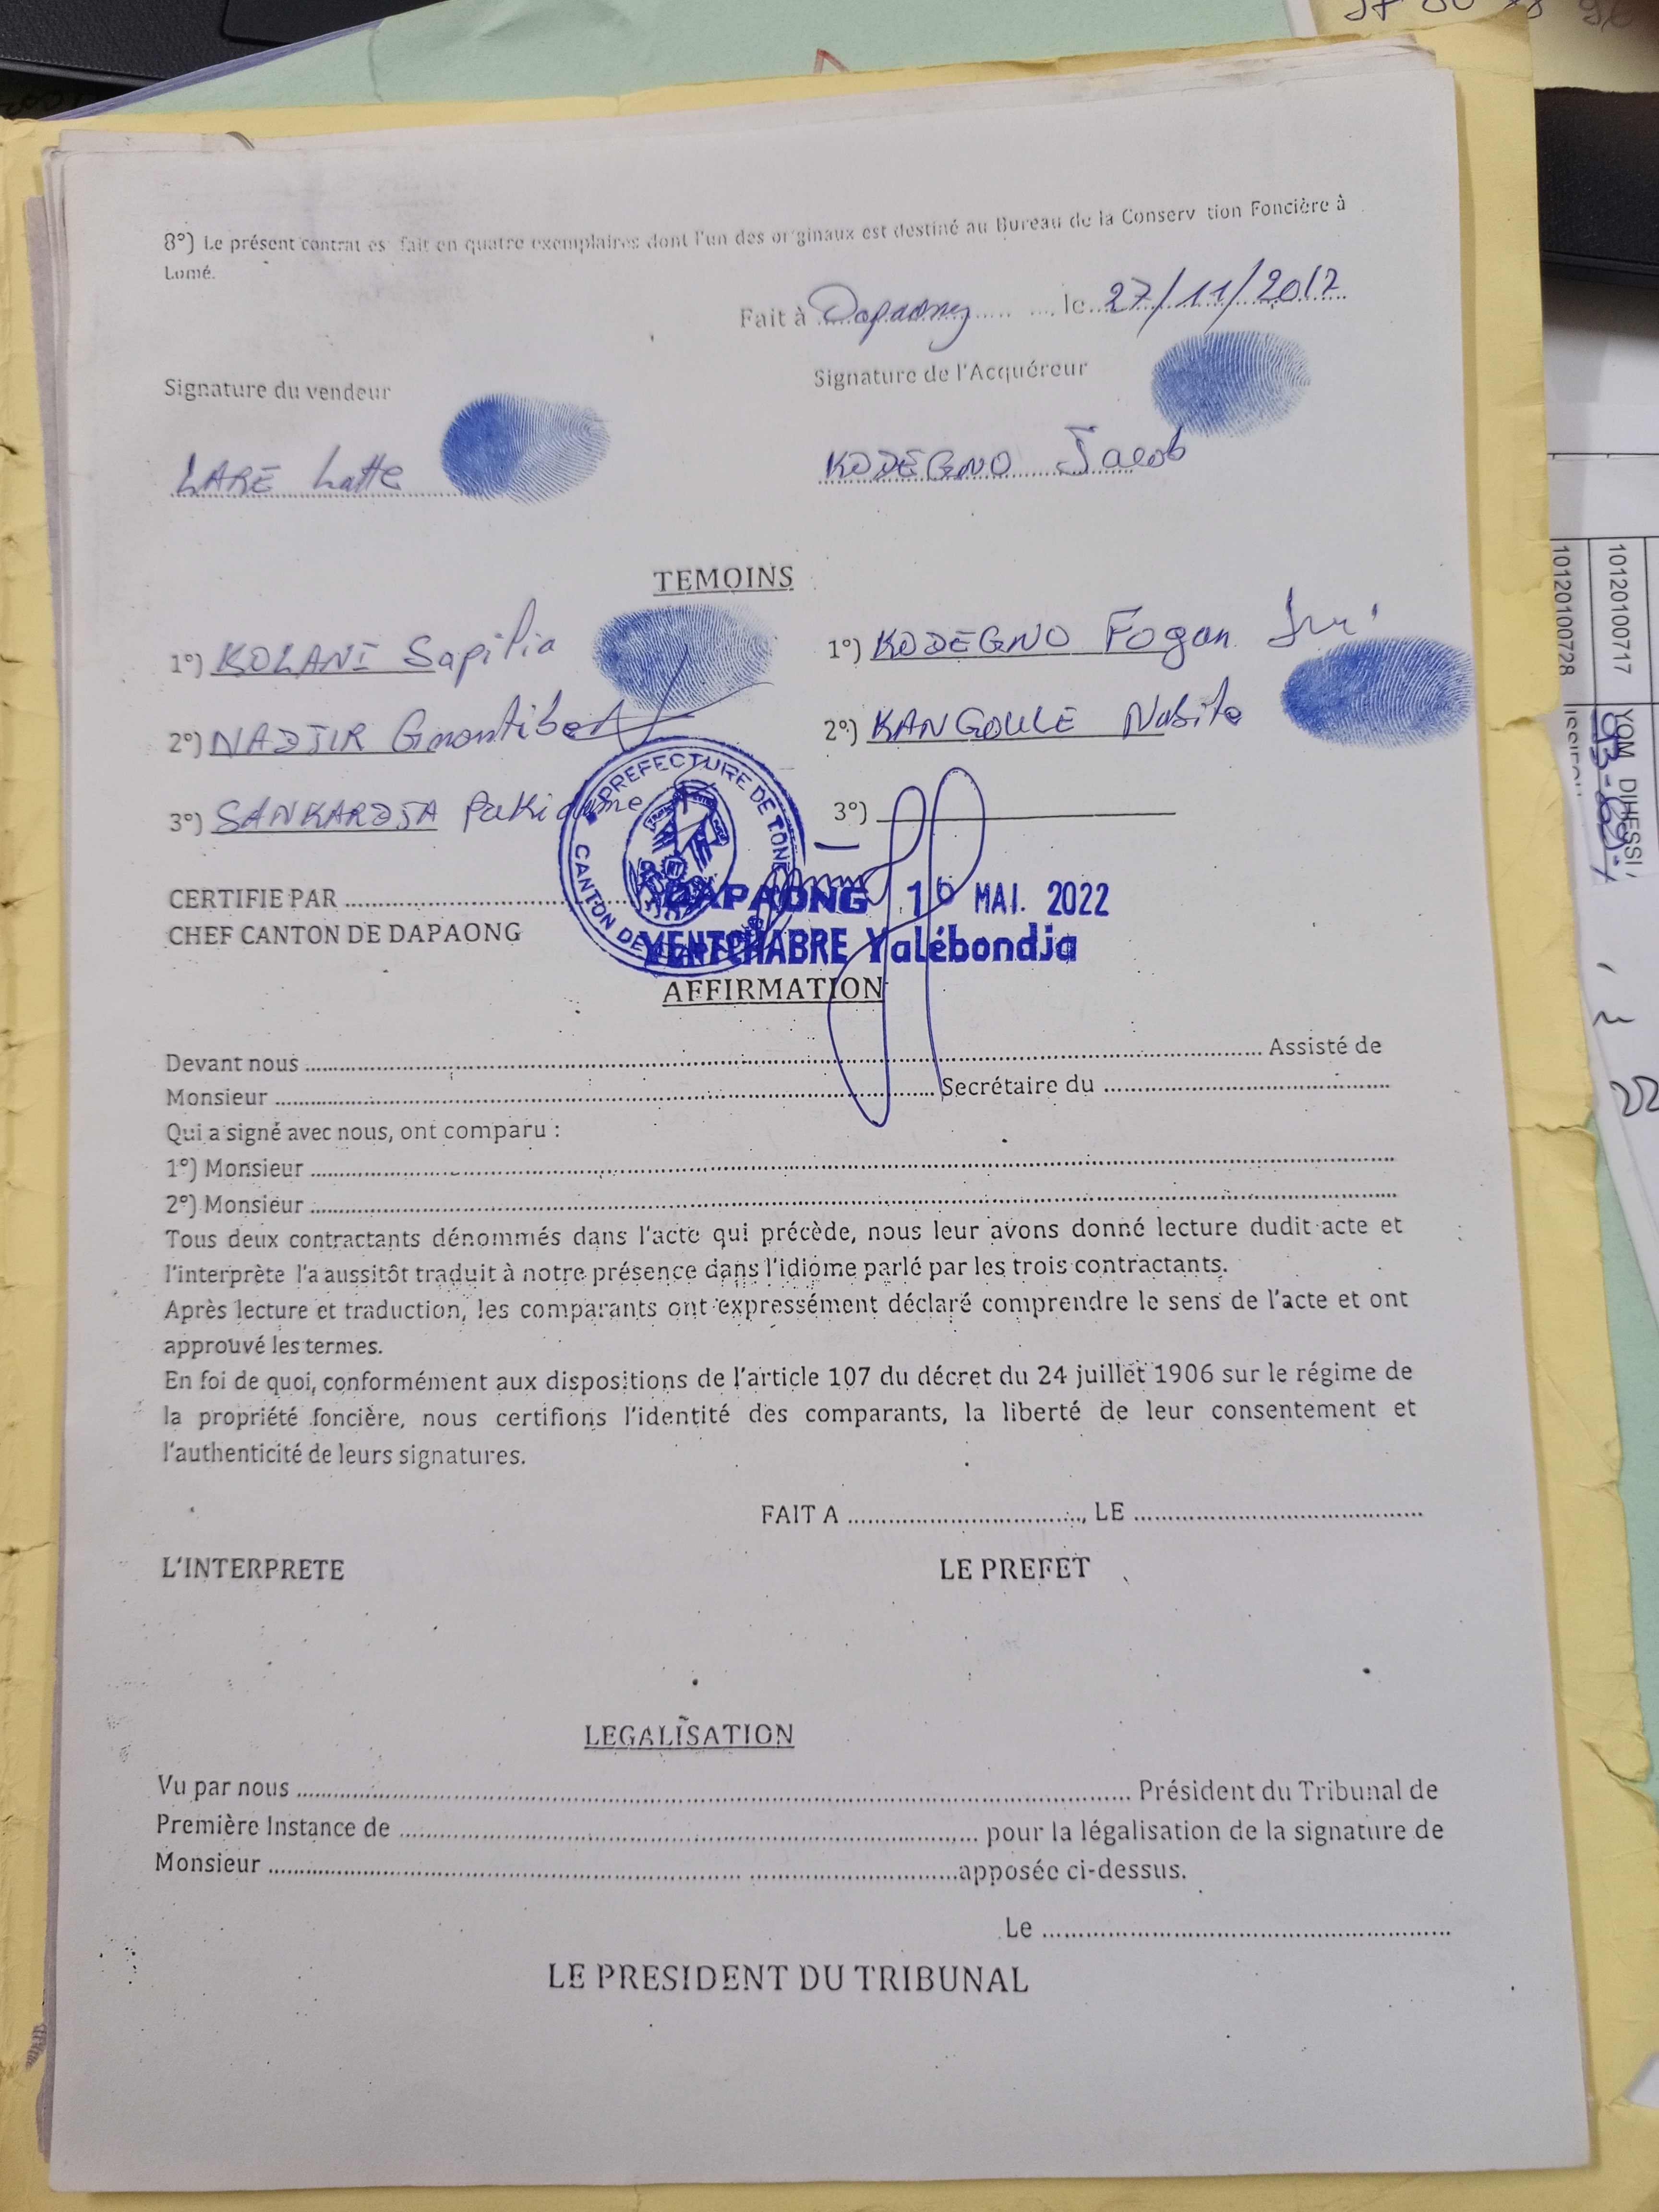 8°) Le présent contrat est fait en quatre exemplaires dont l'un des originaux est destiné au Bureau de la Conserv tion Foncière à
Lomé.
Fait à Dapaong le 27/11/2017
Signature du vendeur
Signature de l'Acquéreur
LARE Latte
KODEGNO Jacob
TEMOINS
1°) KOLANI Sapilia
1°) KODEGNO Fogan
2°) NADJIR
2°) KANGOULE Nabite
3°) SANKARDJA Pakidame
3°)
PREFECTURE DE TONE
CANTON DE
CERTIFIE PAR
DAPAONG 10 MAI. 2022
CHEF CANTON DE DAPAONG
YENTCHABRE Yalébondja
AFFIRMATION
Devant nous Assisté de
Monsieur Secrétaire du
Qui a signé avec nous, ont comparu :
1°) Monsieur
2°) Monsieur
Tous deux contractants dénommés dans l'acte qui précède, nous leur avons donné lecture dudit acte et
l'interprète l'a aussitôt traduit à notre présence dans l'idiome parlé par les trois contractants.
Après lecture et traduction, les comparants ont expressément déclaré comprendre le sens de l'acte et ont
approuvé les termes.
En foi de quoi, conformément aux dispositions de l'article 107 du décret du 24 juillet 1906 sur le régime de
la propriété foncière, nous certifions l'identité des comparants, la liberté de leur consentement et
l'authenticité de leurs signatures.
FAIT A , LE
L'INTERPRETE
LE PREFET
LEGALISATION
Vu par nous Président du Tribunal de
Première Instance de pour la légalisation de la signature de
Monsieur apposée ci-dessus.
Le
LE PRESIDENT DU TRIBUNAL
1012010072 8
1012010071 7
YOM DIHESSI